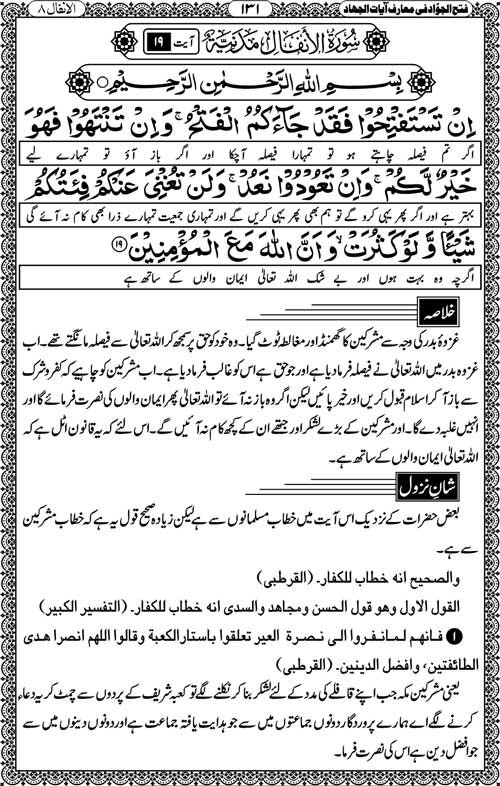 الانفال ۸
۱۳۱
فتح الجوّاد فی معارف آیات الجهاد
سُوْرَةُ الْاَنْفَالِ مَدَنِيَّةٌ
آیت ۱۹
بِسْمِ اللهِ الرَّحْمٰنِ الرَّحِيْمِ
اِنْ تَسْتَفْتِحُوْا فَقَدْ جَآءَكُمُ الْفَتْحُ ۚ وَاِنْ تَنْتَهُوْا فَهُوَ
اگر تم فیصلہ چاہتے ہو تو تمہارا فیصلہ آچکا اور اگر باز آؤ تو تمہارے لیے
خَيْرٌ لَّكُمْ ۚ وَاِنْ تَعُوْدُوْا نَعُدْ ۚ وَلَنْ تُغْنِىَ عَنْكُمْ فِئَتُكُمْ
بہتر ہے اور اگر پھر یہی کرو گے تو ہم بھی پھر یہی کریں گے اور تمہاری جمعیت تمہارے ذرا بھی کام نہ آئے گی
شَيْئًا وَّلَوْ كَثُرَتْ ۙ وَاَنَّ اللهَ مَعَ الْمُؤْمِنِيْنَ ۱۹
اگرچہ وہ بہت ہوں اور بے شک اللہ تعالیٰ ایمان والوں کے ساتھ ہے
خلاصہ
غزوۂ بدر کی وجہ سے مشرکین کا گھمنڈ اور مغالطہ ٹوٹ گیا۔ وہ خود کو حق پر سمجھ کر اللہ تعالیٰ سے فیصلہ مانگتے تھے۔ اب
غزوہ بدر میں اللہ تعالیٰ نے فیصلہ فرما دیا ہے اور جو حق ہے اس کو غالب فرما دیا ہے۔ اب مشرکین کو چاہیے کہ کفر و شرک
سے باز آ کر اسلام قبول کریں اور خیر پائیں لیکن اگر وہ باز نہ آئے تو اللہ تعالیٰ پھر ایمان والوں کی نصرت فرمائے گا اور
انہیں غلبہ دے گا۔ اور مشرکین کے بڑے لشکر اور جتھے ان کے کچھ کام نہ آئیں گے۔ اس لئے کہ یہ قانون اٹل ہے کہ
اللہ تعالیٰ ایمان والوں کے ساتھ ہے۔
شانِ نزول
بعض حضرات کے نزدیک اس آیت میں خطاب مسلمانوں سے ہے لیکن زیادہ صحیح قول یہ ہے کہ خطاب مشرکین
سے ہے۔
والصحیح انه خطاب للکفار۔ (القرطبی)
القول الاول وهو قول الحسن ومجاهد والسدی انه خطاب للکفار۔ (التفسیر الکبیر)
۱ فانهم لما نفروا الی نصرة العیر تعلقوا باستار الکعبة وقالوا اللهم انصرا هدی
الطائفتین، وافضل الدینین۔ (القرطبی)
یعنی مشرکین مکہ جب اپنے قافلے کی مدد کے لئے لشکر بنا کر نکلنے لگے تو کعبہ شریف کے پردوں سے چمٹ کر یہ دعاء
کرنے لگے اے ہمارے پروردگار دونوں جماعتوں میں سے جو ہدایت یافتہ جماعت ہے اور دونوں دینوں میں سے
جو افضل دین ہے اس کی نصرت فرما۔